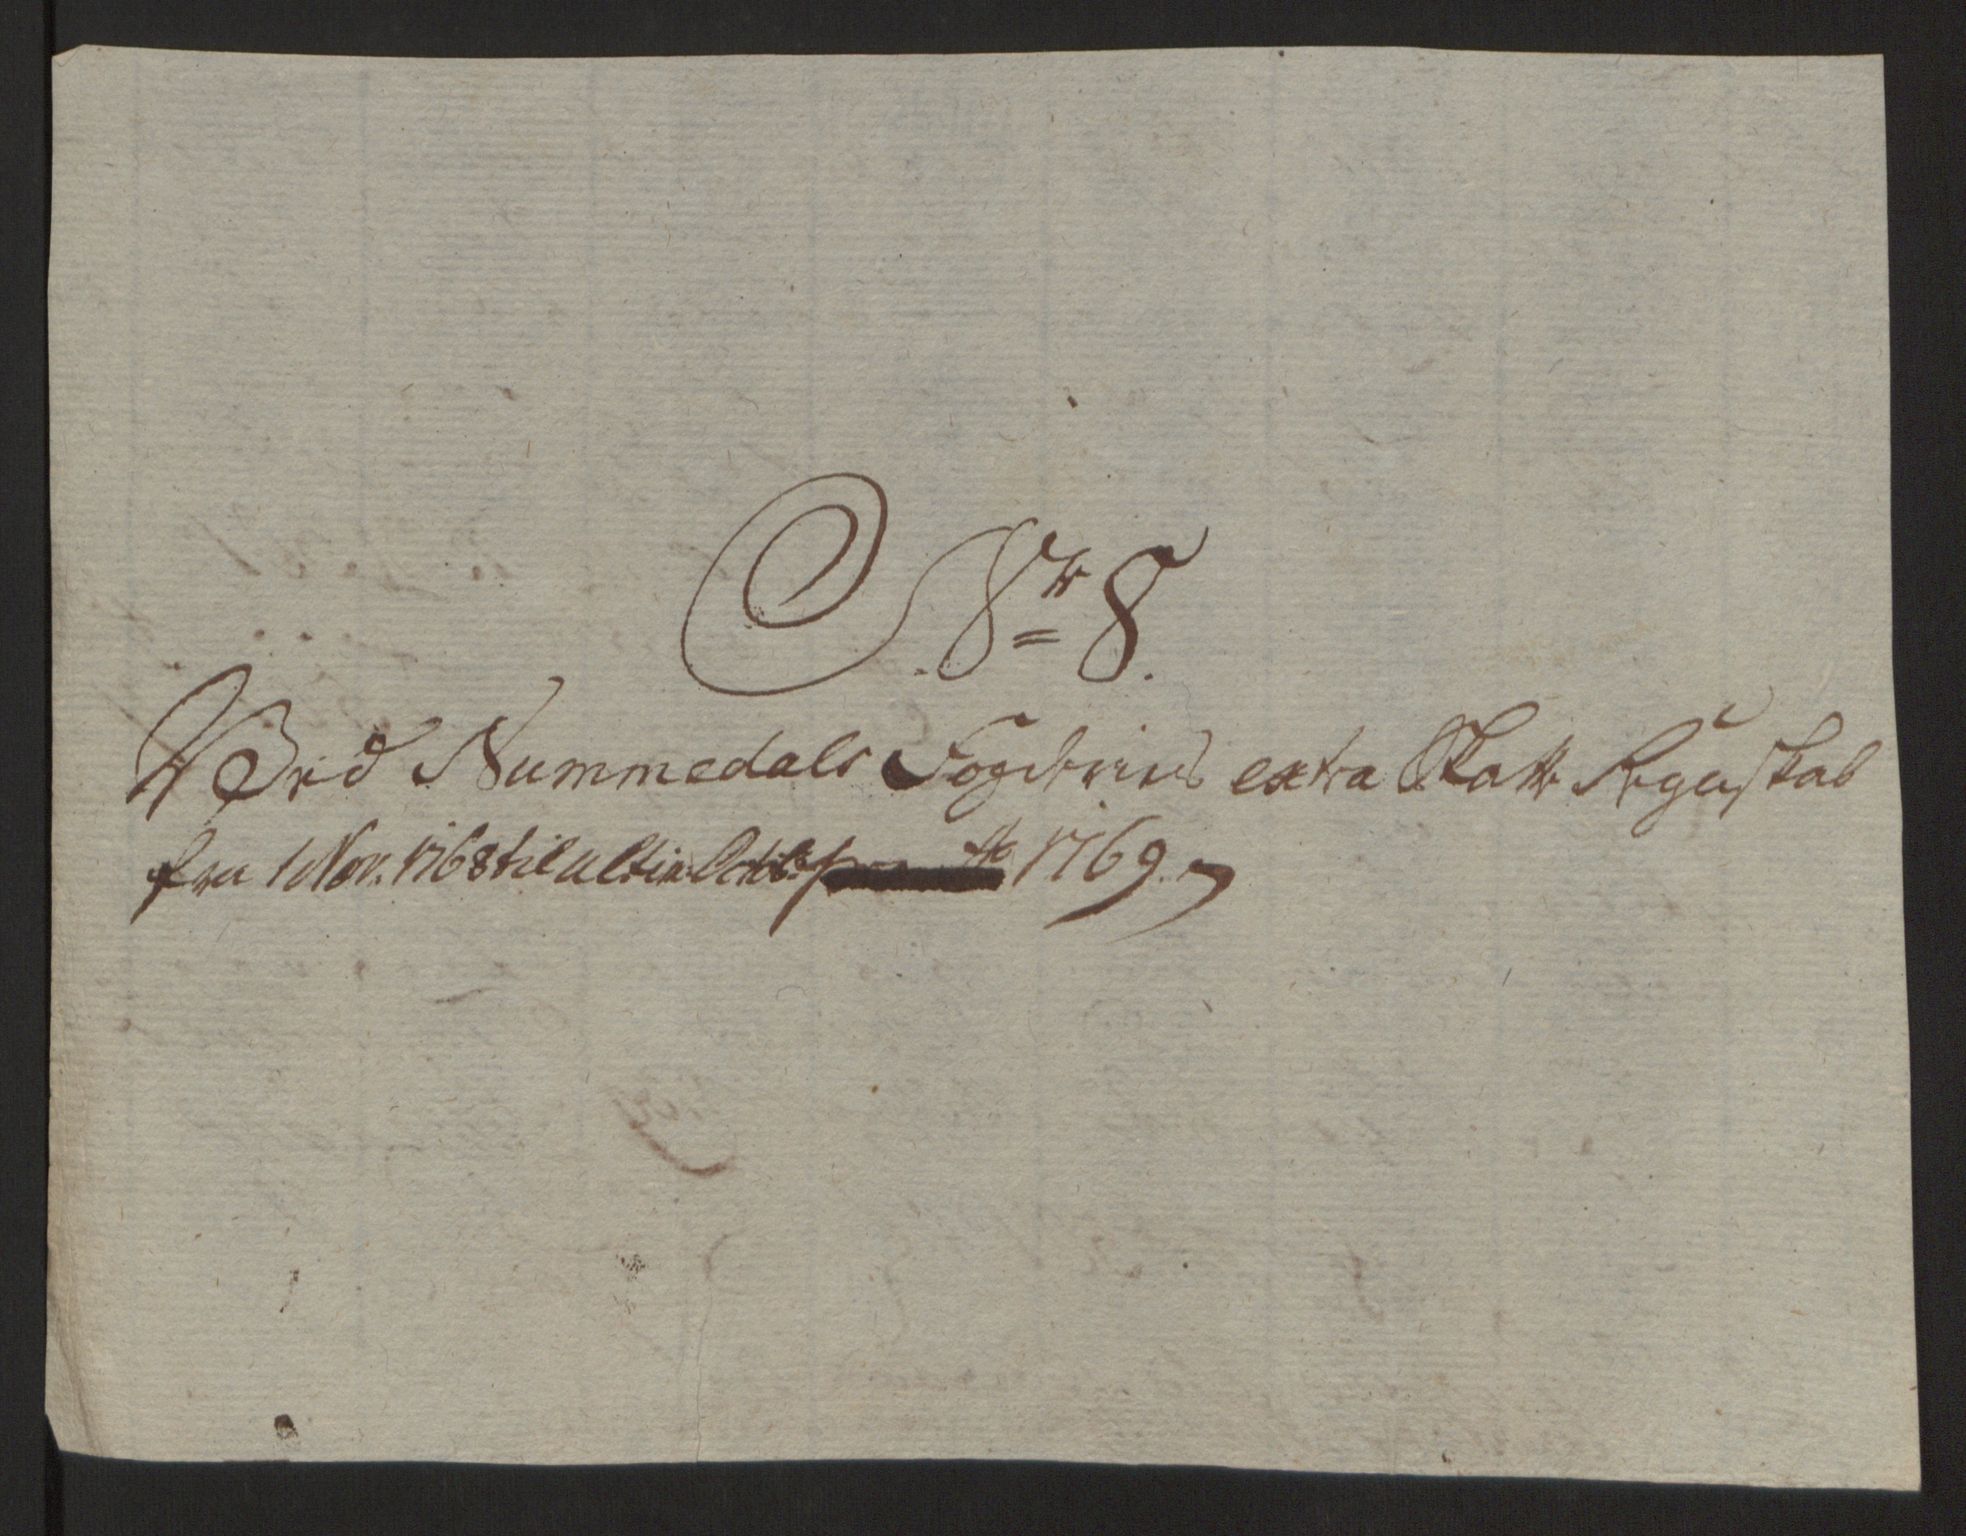 Nr 8.
Ved Nummedals Fogderies extra Skatte Regnskab
fra 1 Nov. 1768 til ultim Octobr 1769.